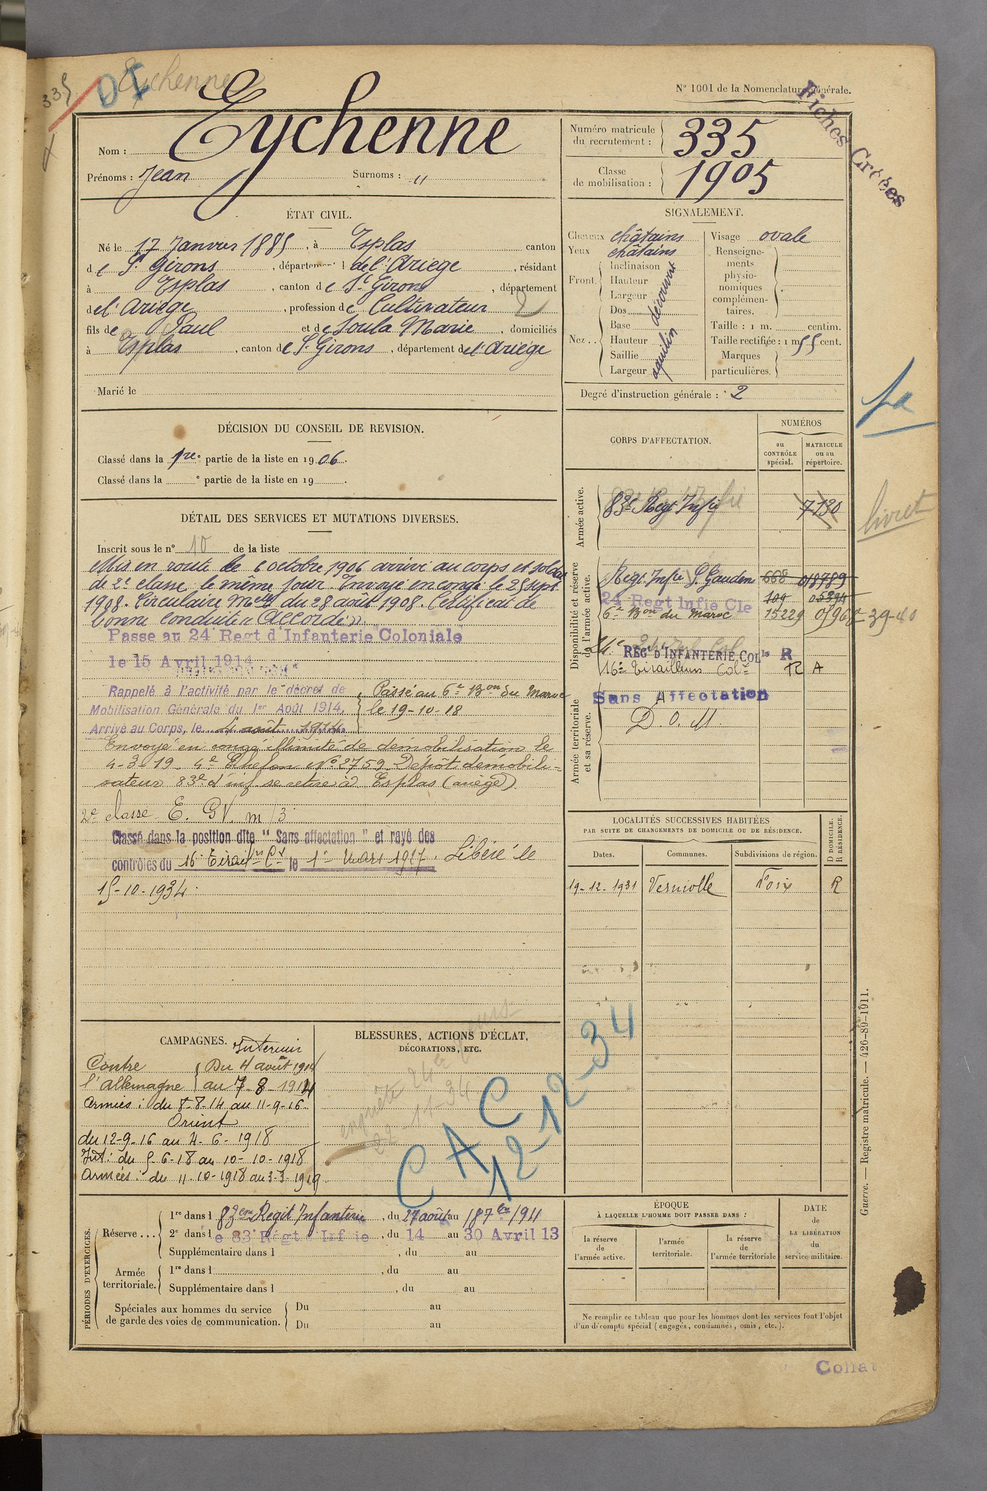 335
Eychenne
N° 1001 de la Nomenclature générale.
Fiches Créées
Nom : Eychenne
Prénoms : Jean Surnoms : "
Numéro matricule du recrutement : 335
Classe de mobilisation : 1905
ÉTAT CIVIL.
Né le 17 Janvier 1885, à Esplas canton
de St Girons, département de l'Ariège, résidant
à Esplas, canton de St Girons, département
de l'Ariège, profession de Cultivateur
fils de Paul et de Soula Marie, domiciliés
à Esplas, canton de St Girons, département de l'Ariège
Marié le
SIGNALEMENT.
Cheveux châtains
Yeux châtains
Front. Inclinaison Hauteur Largeur découvert
Nez.. Dos Base Hauteur Saillie Largeur aquilin
Visage ovale
Renseignements physionomiques complémentaires.
Taille : 1 m. centim.
Taille rectifiée : 1 m 55 cent.
Marques particulières.
Degré d'instruction générale : 2
DÉCISION DU CONSEIL DE REVISION.
Classé dans la 1re partie de la liste en 1906.
Classé dans la e partie de la liste en 19 .
DÉTAIL DES SERVICES ET MUTATIONS DIVERSES.
Inscrit sous le n° 10 de la liste
Mis en route le 6 octobre 1906 arrivé au corps et soldat
de 2e classe le même jour. Envoyé en congé le 25 sept.
1908. Circulaire Melle du 28 août 1908. Certificat de
bonne conduite "Accordé"
Passé au 24 Regt d'Infanterie Coloniale
le 15 Avril 1914
Rappelé à l'activité par le décret de
Mobilisation Générale du 1er Août 1914.
Arrivé au Corps, le 4 août 1914
Passé au 6e Bon du Maroc
le 19-10-18
Envoyé en congé illimité de démobilisation le
4-3-19 4e Echelon No 2759 Dépôt démobili-
sateur 83e d'inf se retire à Esplas (ariège)
2e classe E. GV. m/3
Classé dans la position dite "Sans affectation" et rayé des
contrôles du 16 Tirail. Cl le 1er Mars 1927. Libéré le
15-10-1934.
CORPS D'AFFECTATION.
NUMÉROS
au CONTRÔLE spécial.
MATRICULE ou au répertoire.
Armée active.
83e Regt Infie 7130
Disponibilité et réserve de l'armée active.
Regt Infie St Gaudens 668
24 Regt Infie Cle 109
6e Bon du Maroc 15229
REGt D'INFANTERIE COLle R
16e Tirailleurs Col. R A
Armée territoriale et sa réserve.
Sans Affectation
D. O. M.
livret
LOCALITÉS SUCCESSIVES HABITÉES
PAR SUITE DE CHANGEMENTS DE DOMICILE OU DE RÉSIDENCE.
Dates. Communes. Subdivisions de région. D DOMICILE. R RÉSIDENCE.
19-12-1931 Verniolle Foix R
CAMPAGNES.
Intérieur
Contre l'allemagne { Du 4 août 1914
au 7-8-1914
Armées : du 8-8-14 au 11-9-16
Orient
du 12-9-16 au 4-6-1918
Int : du 5-6-18 au 10-10-1918
Armées : du 11-10-1918 au 3-3-1919
BLESSURES, ACTIONS D'ÉCLAT,
DÉCORATIONS, ETC.
enquête
22-11-34
CAC
12-12-34
PÉRIODES D'EXERCICES.
Réserve... 1re dans l 83eme Regit Infanterie, du 27 août au 18 7bre 1911
2e dans l e 83 Régt Inf ie, du 14 au 30 Avril 13
Supplémentaire dans l , du au
Armée territoriale. 1re dans l , du au
Supplémentaire dans l , du au
Spéciales aux hommes du service de garde des voies de communication. Du au
Du au
ÉPOQUE
À LAQUELLE L'HOMME DOIT PASSER DANS :
la réserve de l'armée active.
l'armée territoriale.
la réserve de l'armée territoriale
DATE de LA LIBÉRATION du service militaire.
Ne remplir ce tableau que pour les hommes dont les services font l'objet
d'un décompte spécial (engagés, condamnés, omis, etc.).
Guerre. — Registre matricule. — 426-89-1911.
Collat